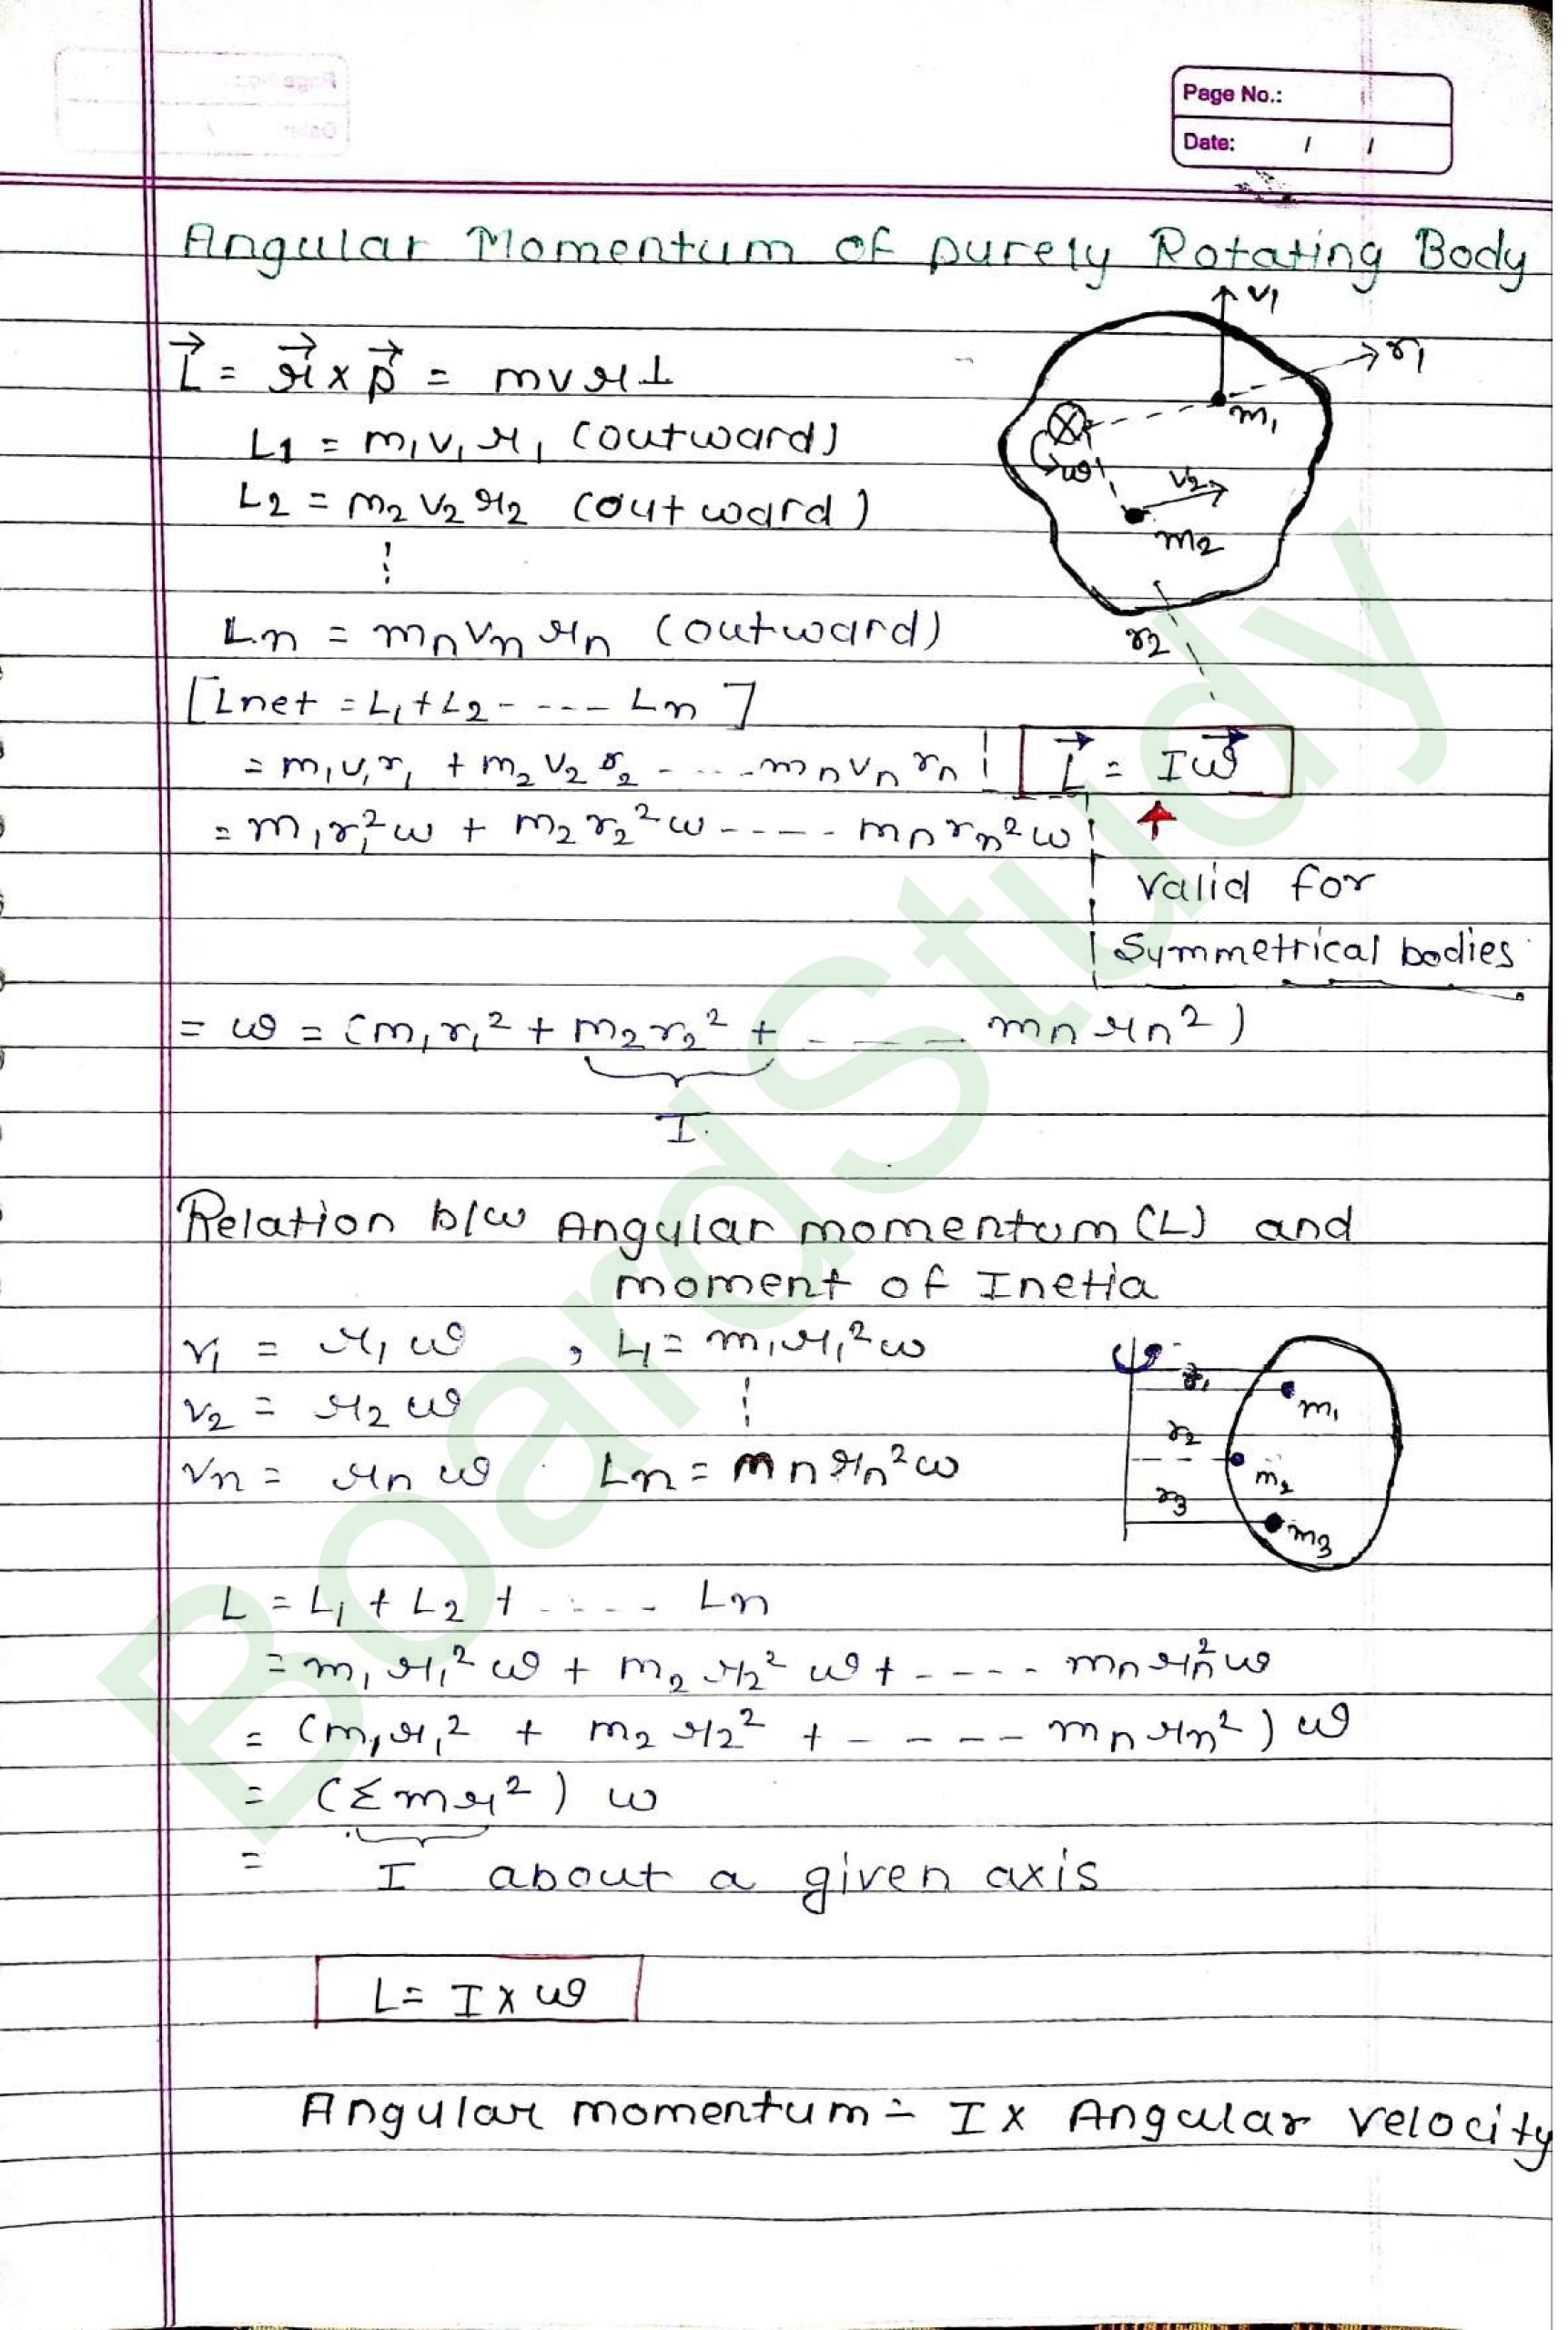 Page No.:
Date: / /
Angular Momentum of purely Rotating Body
L⃗ = r⃗ x p⃗ = mvr⊥
L1 = m₁v₁r₁ (outward)
L2 = m₂v₂r₂ (outward)
⋮
Ln = mₙvₙrₙ (outward)
[Lnet = L₁+L₂- --- Ln ]
= m₁v₁r₁ + m₂v₂r₂ - ...- mₙvₙrₙ
= m₁r₁²ω + m₂r₂²ω ----- mₙrₙ²ω
v₁
r₁
m₁
ω
v₂
m₂
r₂
L⃗ = Iω⃗
valid for
Symmetrical bodies
= ω = (m₁r₁² + m₂r₂² + - - - - mₙrₙ²)
I
Relation b/w Angular momentum (L) and
moment of Inetia
v₁ = r₁ω , L₁ = m₁r₁²ω
v₂ = r₂ω ⋮
vn = rₙω Ln = mₙrₙ²ω
ω
r₁
m₁
r₂
m₂
r₃
m₃
L = L₁ + L₂ + ..... Ln
= m₁r₁²ω + m₂r₂²ω + ----- mₙrₙ²ω
= (m₁r₁² + m₂r₂² + ----- mₙrₙ²) ω
= (Σmr²) ω
= I about a given axis
L = I x ω
Angular momentum = I x Angular velocity
BoardStudy